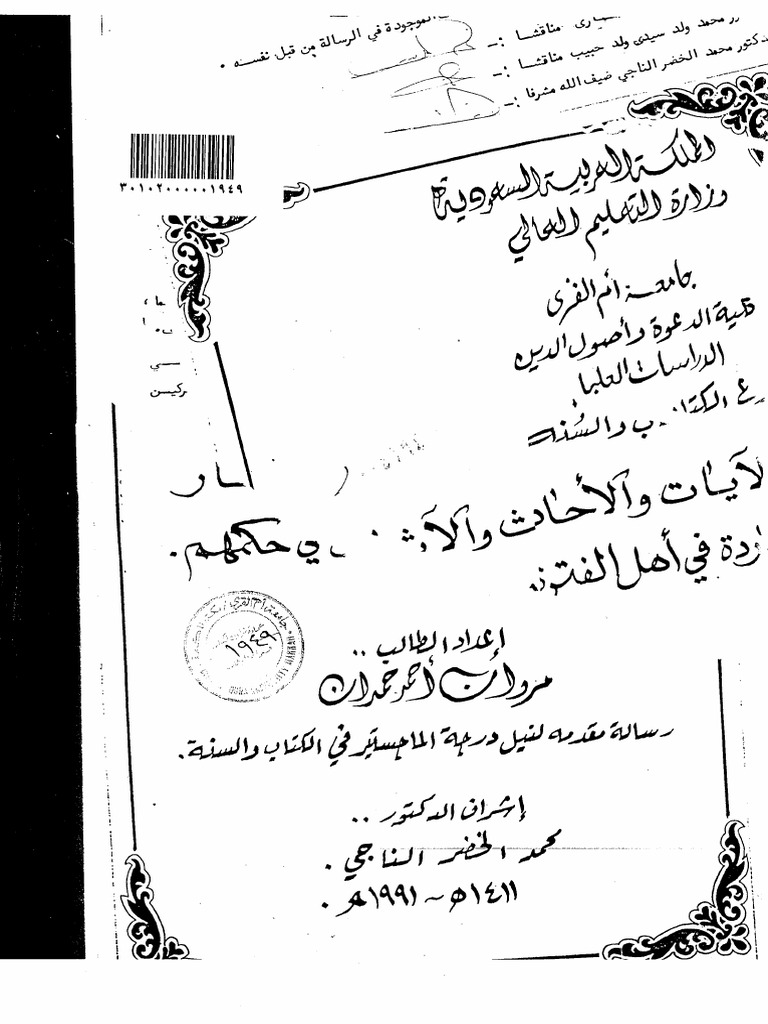 الموجودة في الرسالة من قبل نفسه .
محمد ولد سيدي ولد حبيب مناقشا :-
دكتور محمد الخضر الناجي ضيف الله مشرفا :-
٣٠١٠٢٠٠٠٠٠١٩٤٩
المملكة العربية السعودية
وزارة التعليم العالي
جامعة أم القرى
كلية الدعوة وأصول الدين
الدراسات العليا
ع الكتا ب والسنه
لآيات والأحاديث والآ ـار
ردة في أهل الفتر ي حكمهم .
ركين
١٩٤٩
إعداد الطالب ..
مروان أحمد حمدان
رسالة مقدمه لنيل درجة الماجستير في الكتاب والسنة .
إشراف الدكتور ..
محمد الخضر الناجي .
١٤١١هـ - ١٩٩١م .